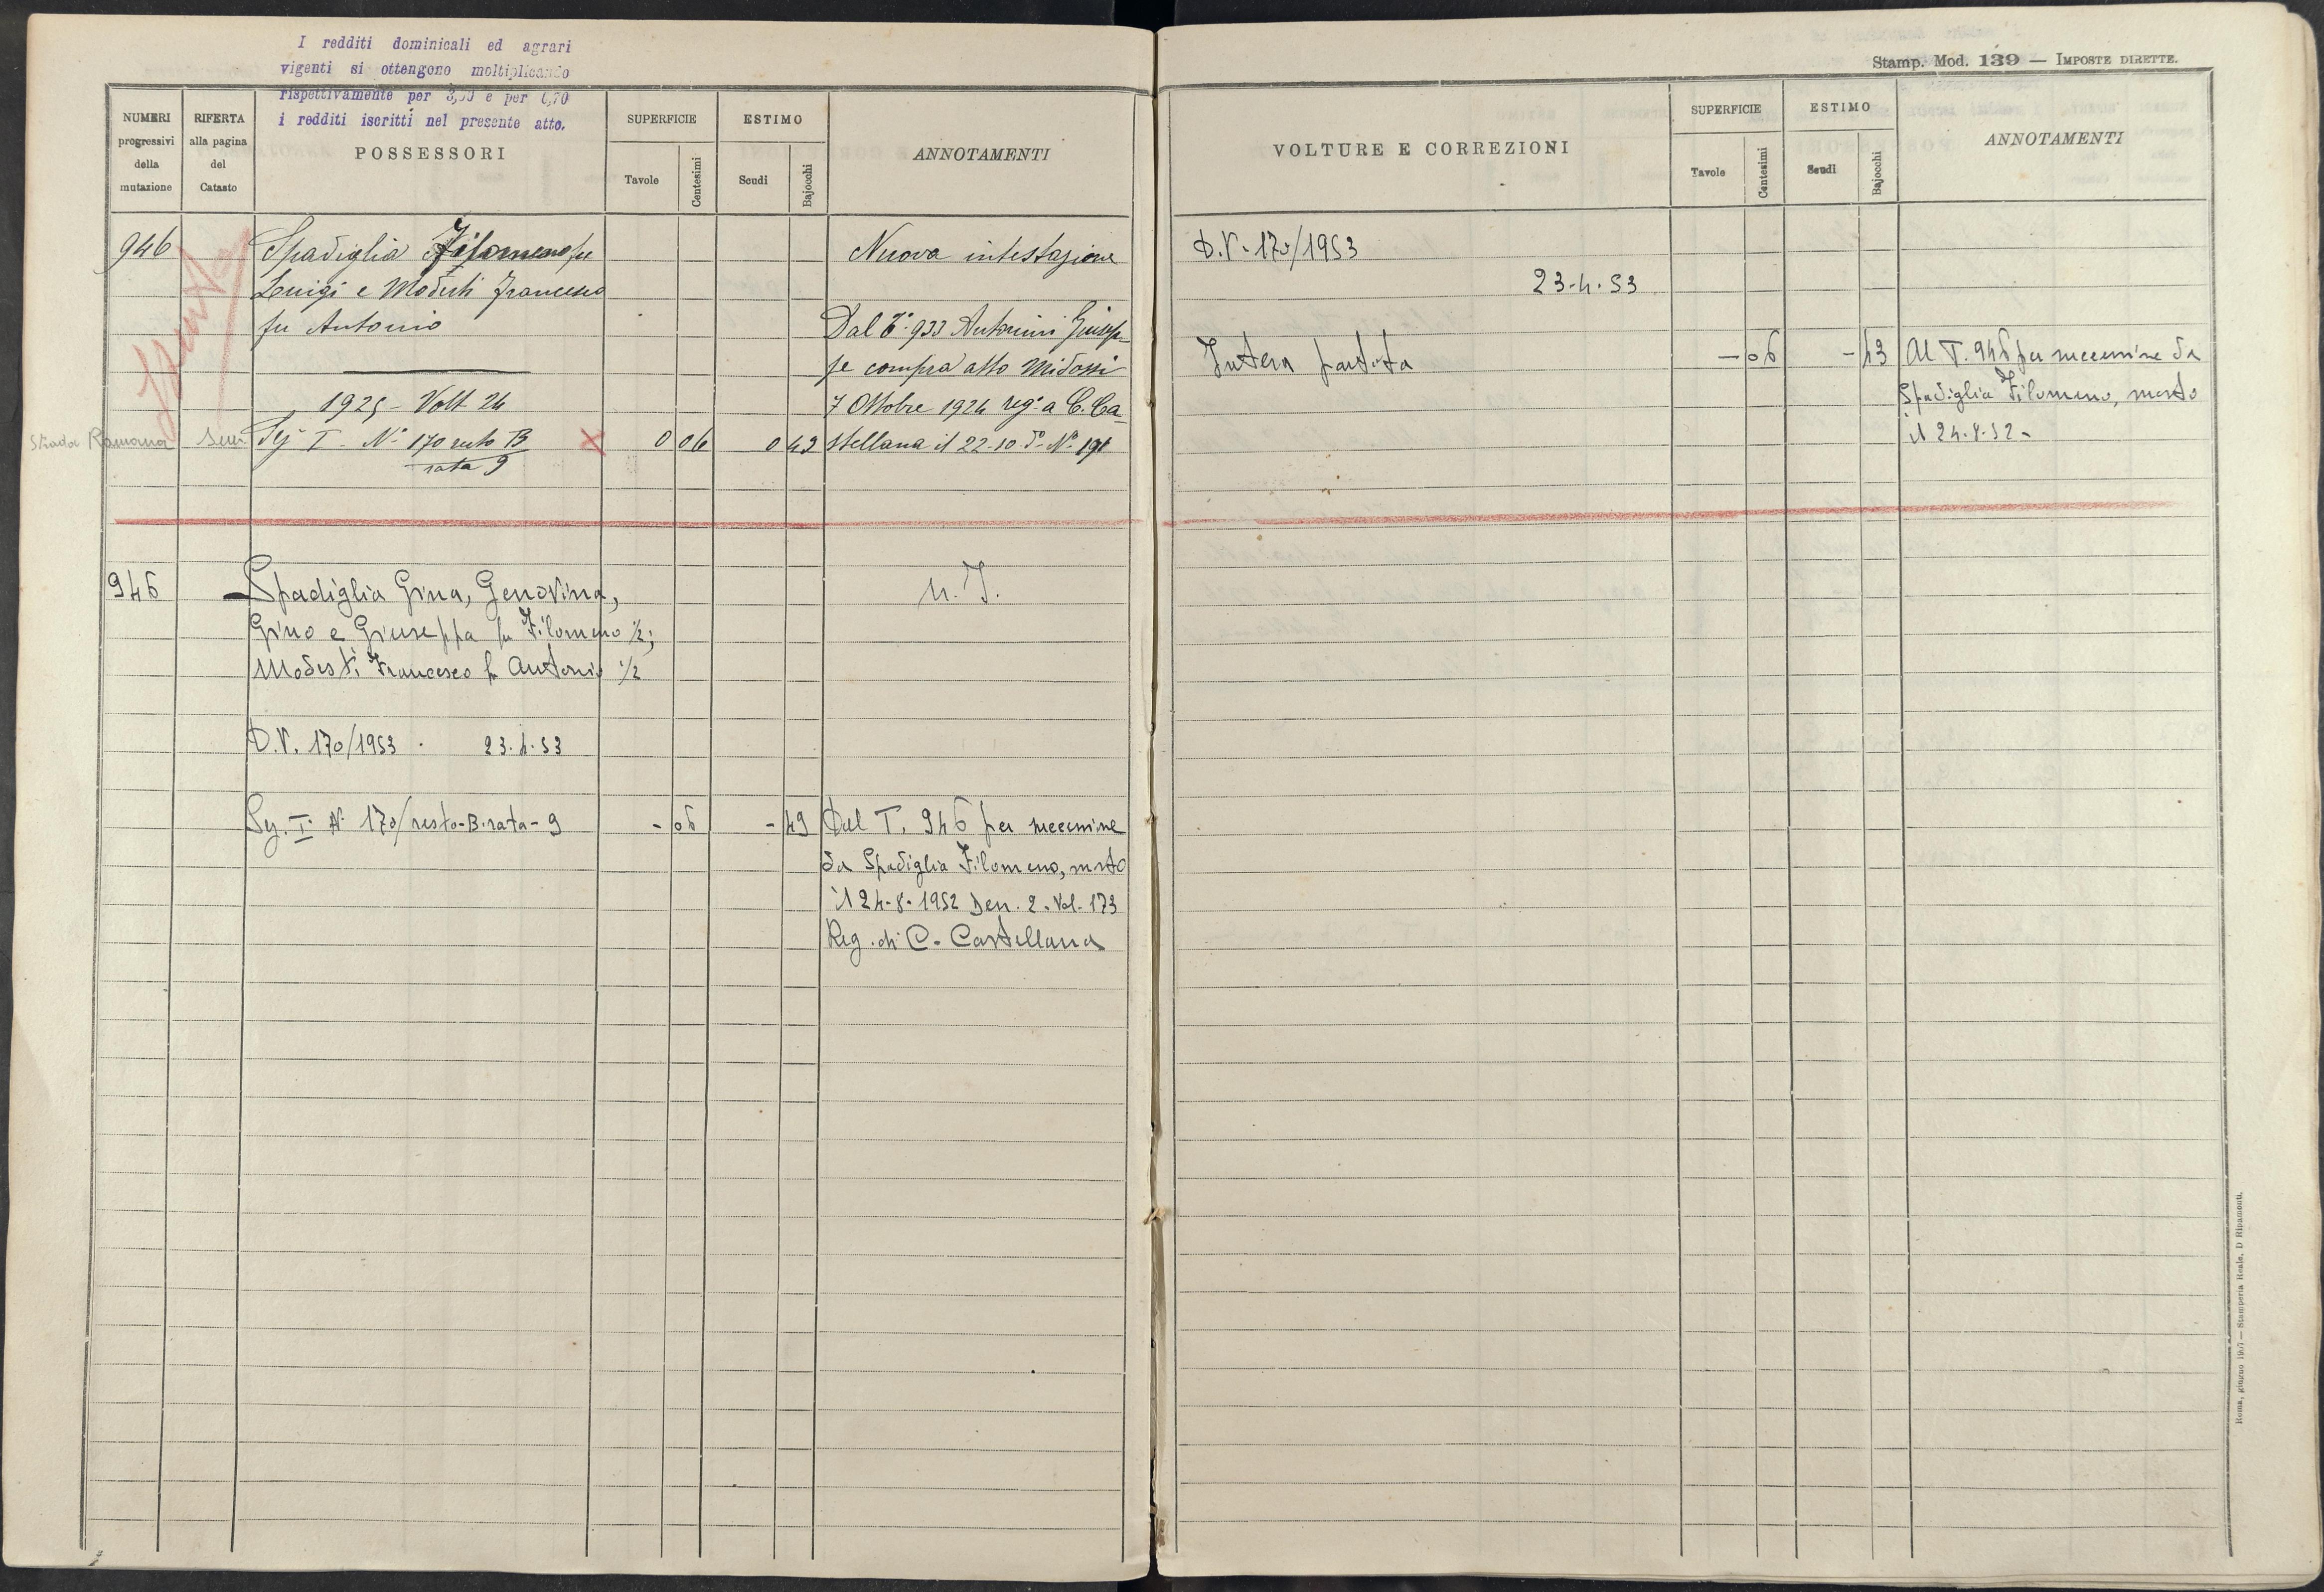 I redditi dominicali ed agrari
vigenti si ottengono moltiplicando
rispettivamente per 3,50 e per 0,70
i redditi iscritti nel presente atto.
NUMERI progressivi della mutazione
RIFERTA alla pagina del Catasto
POSSESSORI
SUPERFICIE
Tavole
Centesimi
ESTIMO
Scudi
Bajocchi
ANNOTAMENTI
946
Spadiglia Filomeno fu
Luigi e Modesti Francesco
fu Antonio
1925 - Volt 24
Strada Romana Sem
Sez I. N. 170 resto B X 0 06 0 49
rata 9
Nuova intestazione
Dal T. 933 Antonini Giusep-
pe compra atto Midossi
7 Ottobre 1924 reg. a C. Ca-
stellana il 22-10 do. N. 191
946
Spadiglia Gina, Genovina,
Gino e Giuseppa fu Filomeno 1/2;
Modesti Francesco fu Antonio 1/2
n. I.
D.V. 170/1953 . 23.4.53
Sez. I. N. 170/resto-B-rata-9 - 06 - 49
Dal T. 946 per successione
da Spadiglia Filomeno, morto
il 24-8-1952 Den. 2. Vol. 173
Reg. di C. Castellana
Stamp. Mod. 139 — IMPOSTE DIRETTE.
VOLTURE E CORREZIONI
SUPERFICIE
Tavole
Centesimi
ESTIMO
Scudi
Bajocchi
ANNOTAMENTI
D.V. 170/1953
23-4-53
Intera partita - 06 - 43
Al T. 946 per successione da
Spadiglia Filomeno, morto
il 24-8-52-
Stamperia Reale, D Ripamonti.